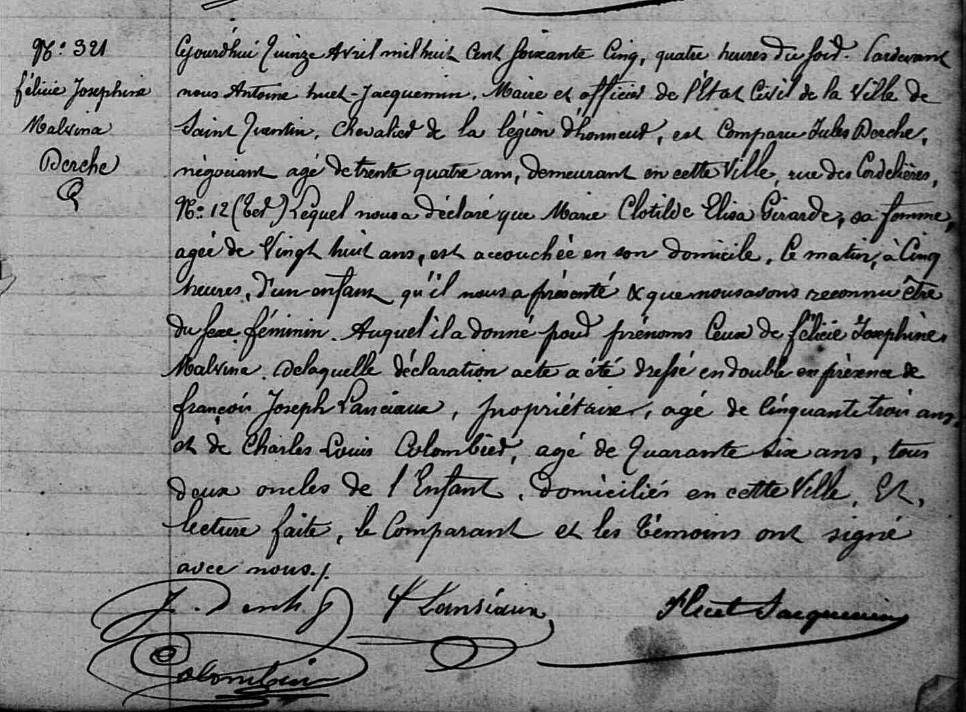 N.o 321
félicie Joséphine
Malvina
Derche
Cejourd'hui Quinze Avril mil huit Cent Soixante Cinq, quatre heures du Soir. Pardevant
nous Antoine huet-Jacquemin, Maire et officier de l'État Civil de la Ville de
Saint Quentin, Chevalier de la légion d'honneur, est Comparu Jules Derche,
négociant agé de trente quatre ans, demeurant en cette Ville, rue des Cordelières,
N.o 12 Lequel nous a déclaré que Marie Clotilde Elisa Girarde, sa femme,
agée de Vingt huit ans, est accouchée en son domicile, le matin, à Cinq
heures, d'un enfant qu'il nous a présenté & que nous avons reconnu être
du Sexe féminin. Auquel il a donné pour prénoms Ceux de félicie Joséphine
Malvina. Delaquelle déclaration acte a été dressé en double en présence de
françois Joseph Lansiaux, propriétaire, agé de Cinquante trois ans,
et de Charles Louis Colombier, agé de Quarante Six ans, tous
deux oncles de l'Enfant, domiciliés en cette Ville, Et,
lecture faite, le Comparant et les Témoins ont signé
avec nous./.
J. Derche
Lansiaux
Huet Jacquemin
Colombier